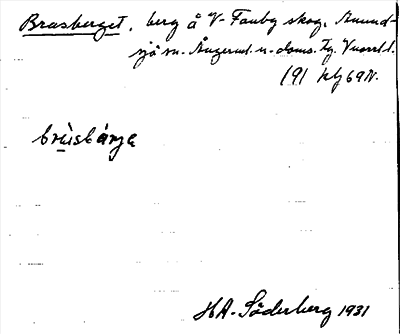 Brasberget, berg å V. Fanby skog, Anund-
sjö sn. Ångerml. n. doms. tg. Vnorrl. l.
191
brasbärje
H.A. Söderberg 1931